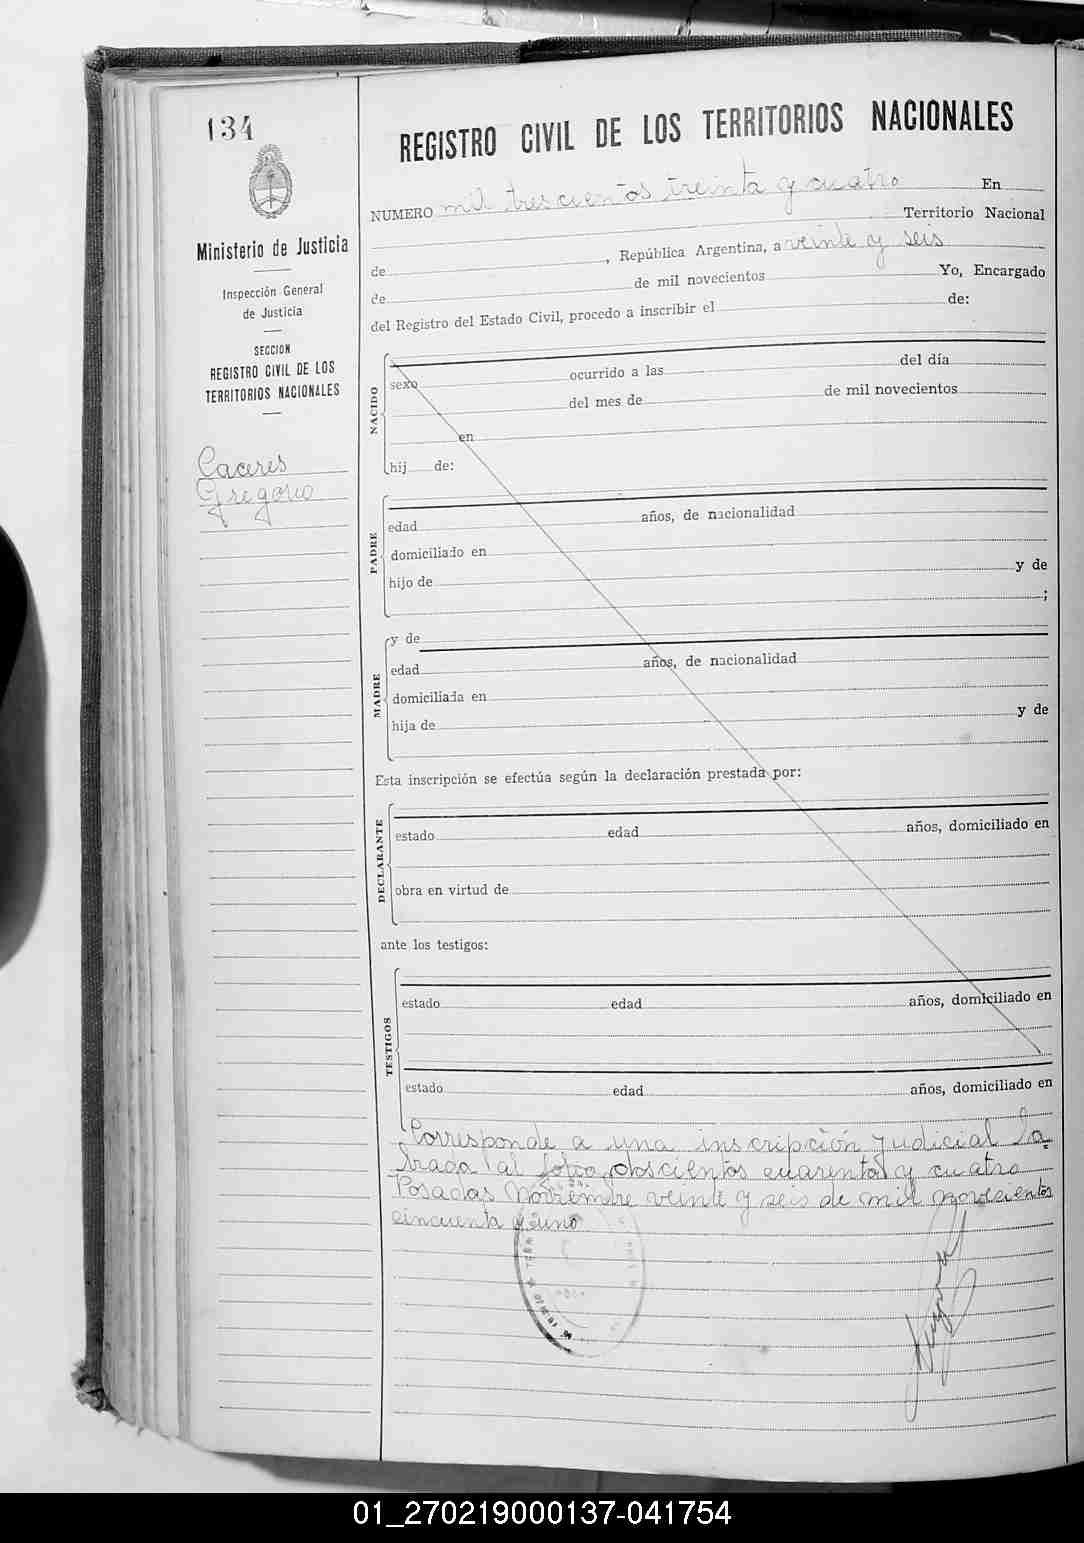 134
REGISTRO CIVIL DE LOS TERRITORIOS NACIONALES
Ministerio de Justicia
Inspección General
de Justicia
SECCION
REGISTRO CIVIL DE LOS
TERRITORIOS NACIONALES
Caceres
Gregorio
NUMERO mil trescientos treinta y cuatro En
Territorio Nacional
de , República Argentina, a veinte y seis
de de mil novecientos Yo, Encargado
del Registro del Estado Civil, procedo a inscribir el de:
NACIDO
sexo ocurrido a las del día
del mes de de mil novecientos
en
hij de:
PADRE
edad años, de nacionalidad
domiciliado en
hijo de y de
;
MADRE
y de
edad años, de nacionalidad
domiciliada en
hija de y de
Esta inscripción se efectúa según la declaración prestada por:
DECLARANTE
estado edad años, domiciliado en
obra en virtud de
ante los testigos:
TESTIGOS
estado edad años, domiciliado en
estado edad años, domiciliado en
Corresponde a una inscripción judicial la
brada al folio doscientos cuarenta y cuatro
Posadas Noviembre veinte y seis de mil novecientos
cincuenta y uno
01_270219000137-041754